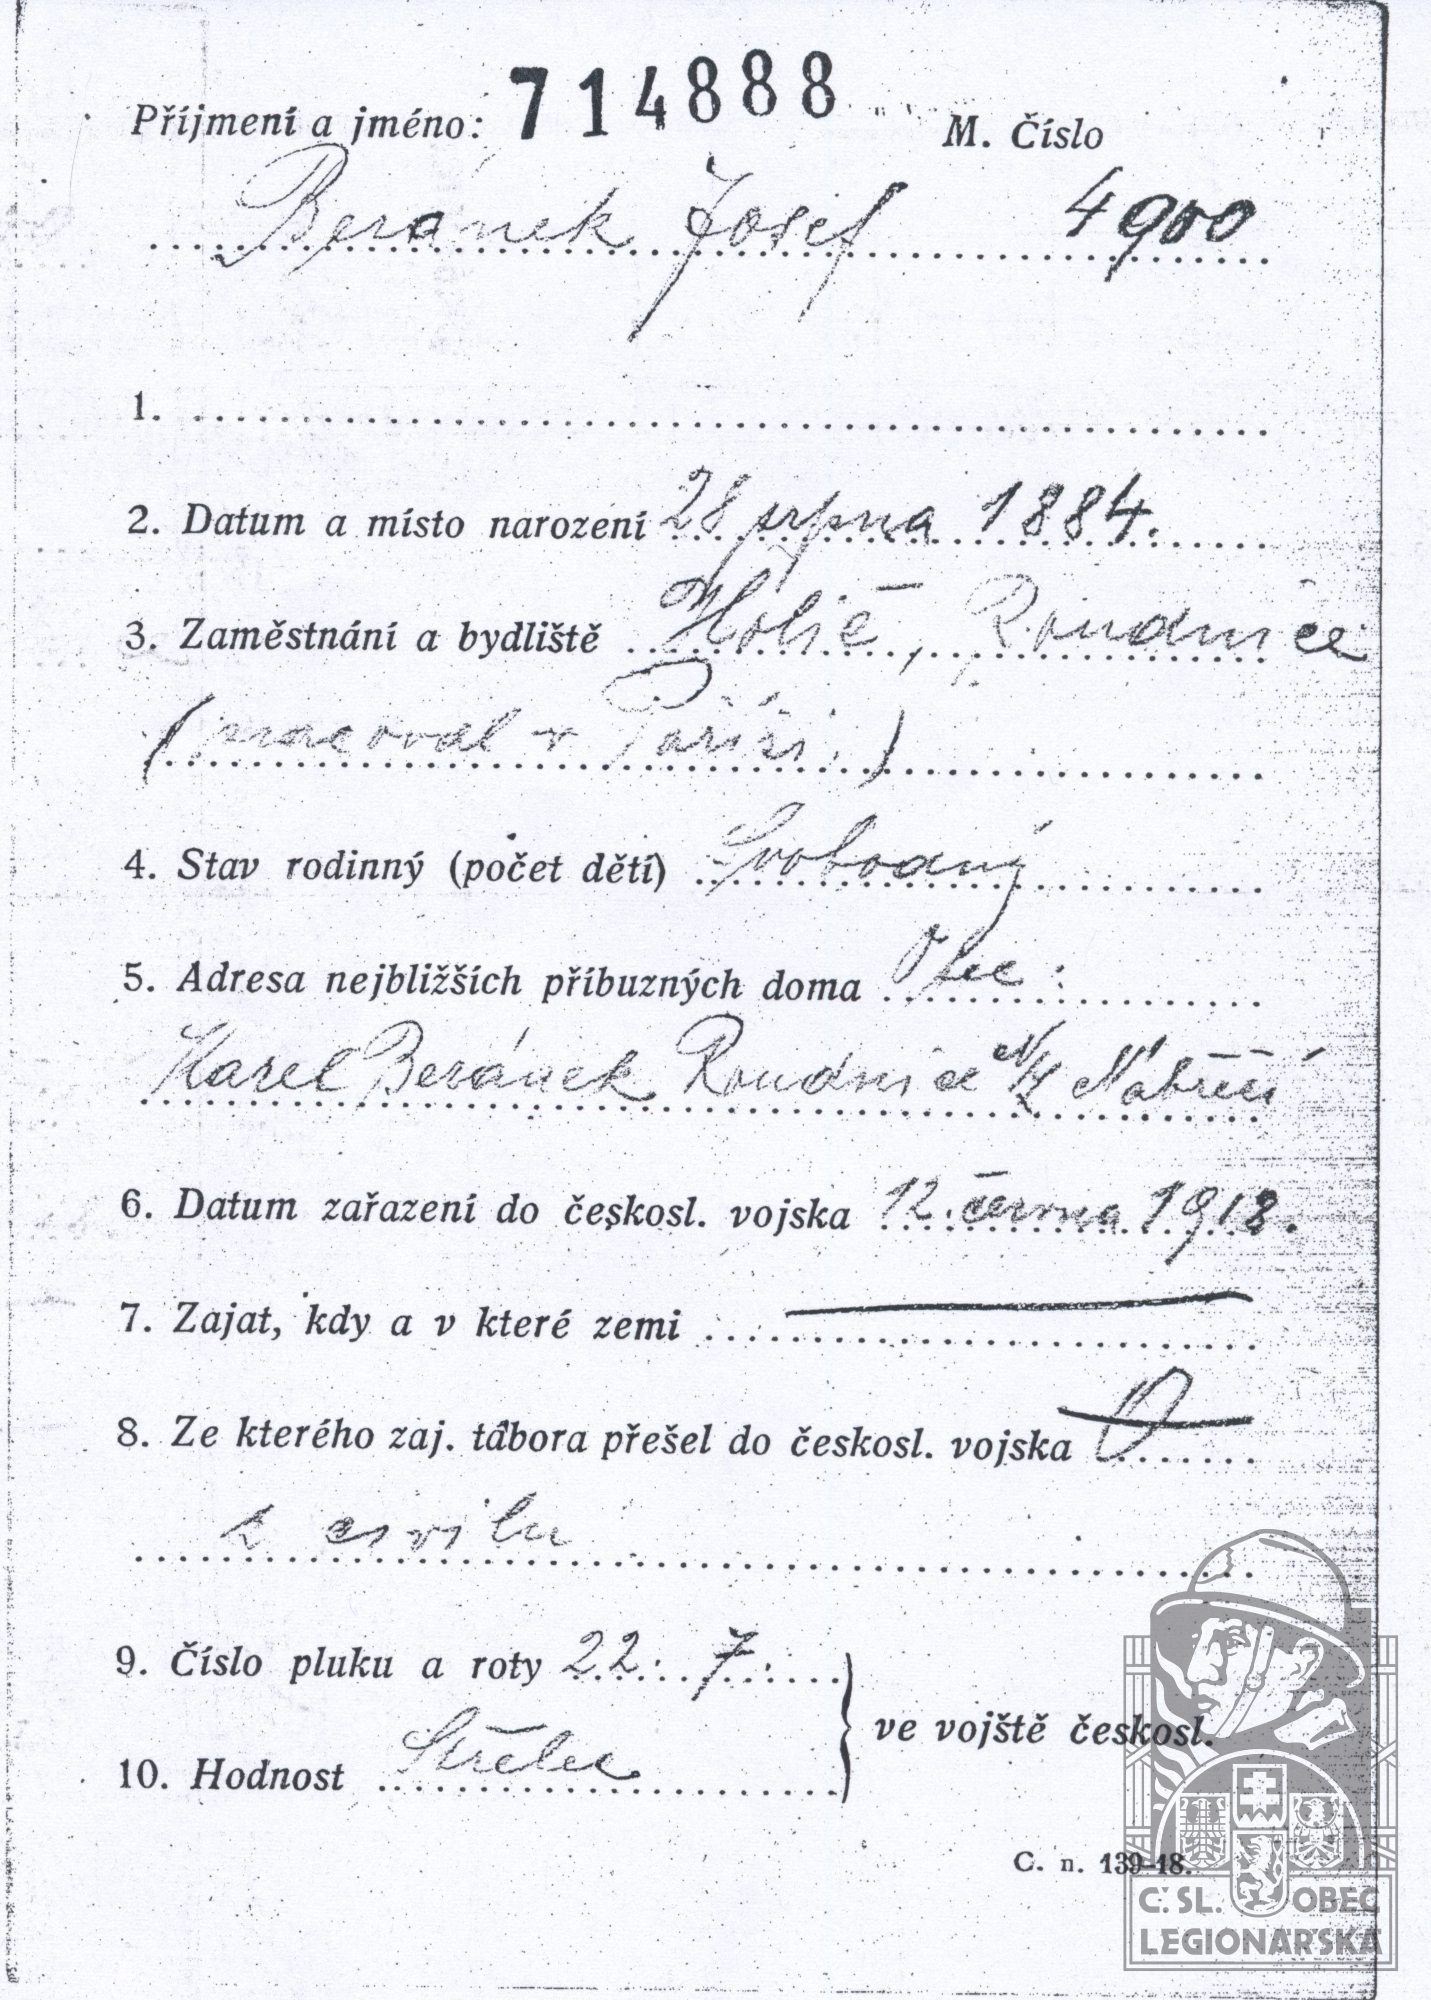 714888
Příjmení a jméno: M. Číslo
Beránek Josef 4900
1.
2. Datum a místo narození 28 srpna 1884.
3. Zaměstnání a bydliště Holič, Roudnice
(pracoval v Paříži.)
4. Stav rodinný (počet dětí) Svobodný
5. Adresa nejbližších příbuzných doma Otec:
Karel Beránek Roudnice n/L Nábřeží
6. Datum zařazení do českosl. vojska 12. června 1918.
7. Zajat, kdy a v které zemi
8. Ze kterého zaj. tábora přešel do českosl. vojska
z civilu
9. Číslo pluku a roty 22. 7.
10. Hodnost Střelec
ve vojště českosl.
C. n. 139-18.
Č. SL. OBEC
LEGIONÁŘSKÁ